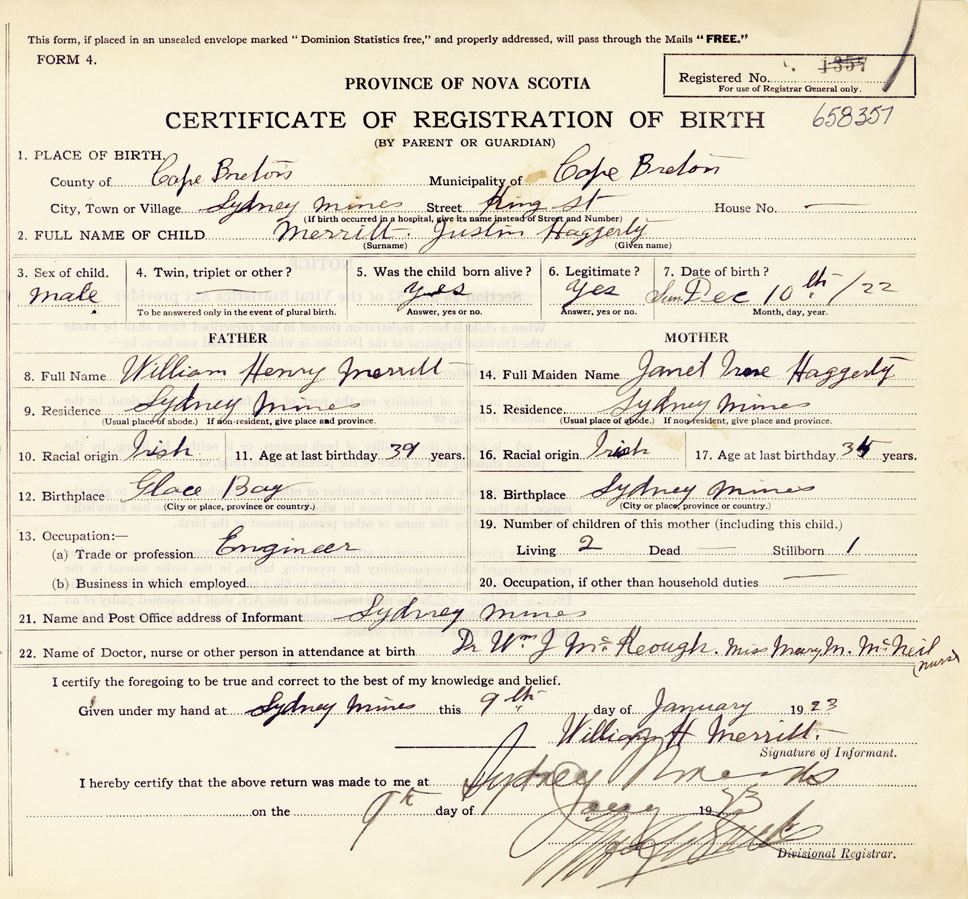 This form, if placed in an unsealed envelope marked "Dominion Statistics free," and properly addressed, will pass through the Mails "FREE."
FORM 4.
Registered No. 1357
For use of Registrar General only.
PROVINCE OF NOVA SCOTIA
CERTIFICATE OF REGISTRATION OF BIRTH 658357
(BY PARENT OR GUARDIAN)
1. PLACE OF BIRTH.
County of Cape Breton Municipality of Cape Breton
City, Town or Village Sydney Mines Street King St House No. —
(If birth occurred in a hospital, give its name instead of Street and Number)
2. FULL NAME OF CHILD Merritt. Justin Haggerty
(Surname) (Given name)
3. Sex of child. 4. Twin, triplet or other? 5. Was the child born alive? 6. Legitimate? 7. Date of birth?
male — yes yes Sun Dec 10th /22
To be answered only in the event of plural birth. Answer, yes or no. Answer, yes or no. Month, day, year.
FATHER MOTHER
8. Full Name William Henry Merritt 14. Full Maiden Name Janet Irene Haggerty
9. Residence Sydney Mines 15. Residence Sydney Mines
(Usual place of abode.) If non-resident, give place and province. (Usual place of abode.) If non-resident, give place and province.
10. Racial origin Irish 11. Age at last birthday 39 years. 16. Racial origin Irish 17. Age at last birthday 35 years.
12. Birthplace Glace Bay 18. Birthplace Sydney Mines
(City or place, province or country.) (City or place, province or country.)
13. Occupation:— 19. Number of children of this mother (including this child.)
(a) Trade or profession Engineer Living 2 Dead — Stillborn 1
(b) Business in which employed 20. Occupation, if other than household duties —
21. Name and Post Office address of Informant Sydney Mines
22. Name of Doctor, nurse or other person in attendance at birth Dr Wm J McKeough. Miss Mary M. McNeil
(nurse)
I certify the foregoing to be true and correct to the best of my knowledge and belief.
Given under my hand at Sydney Mines this 9th day of January 1923
William H Merritt.
Signature of Informant.
I hereby certify that the above return was made to me at Sydney Mines
on the 9th day of Jany 1923
Divisional Registrar.